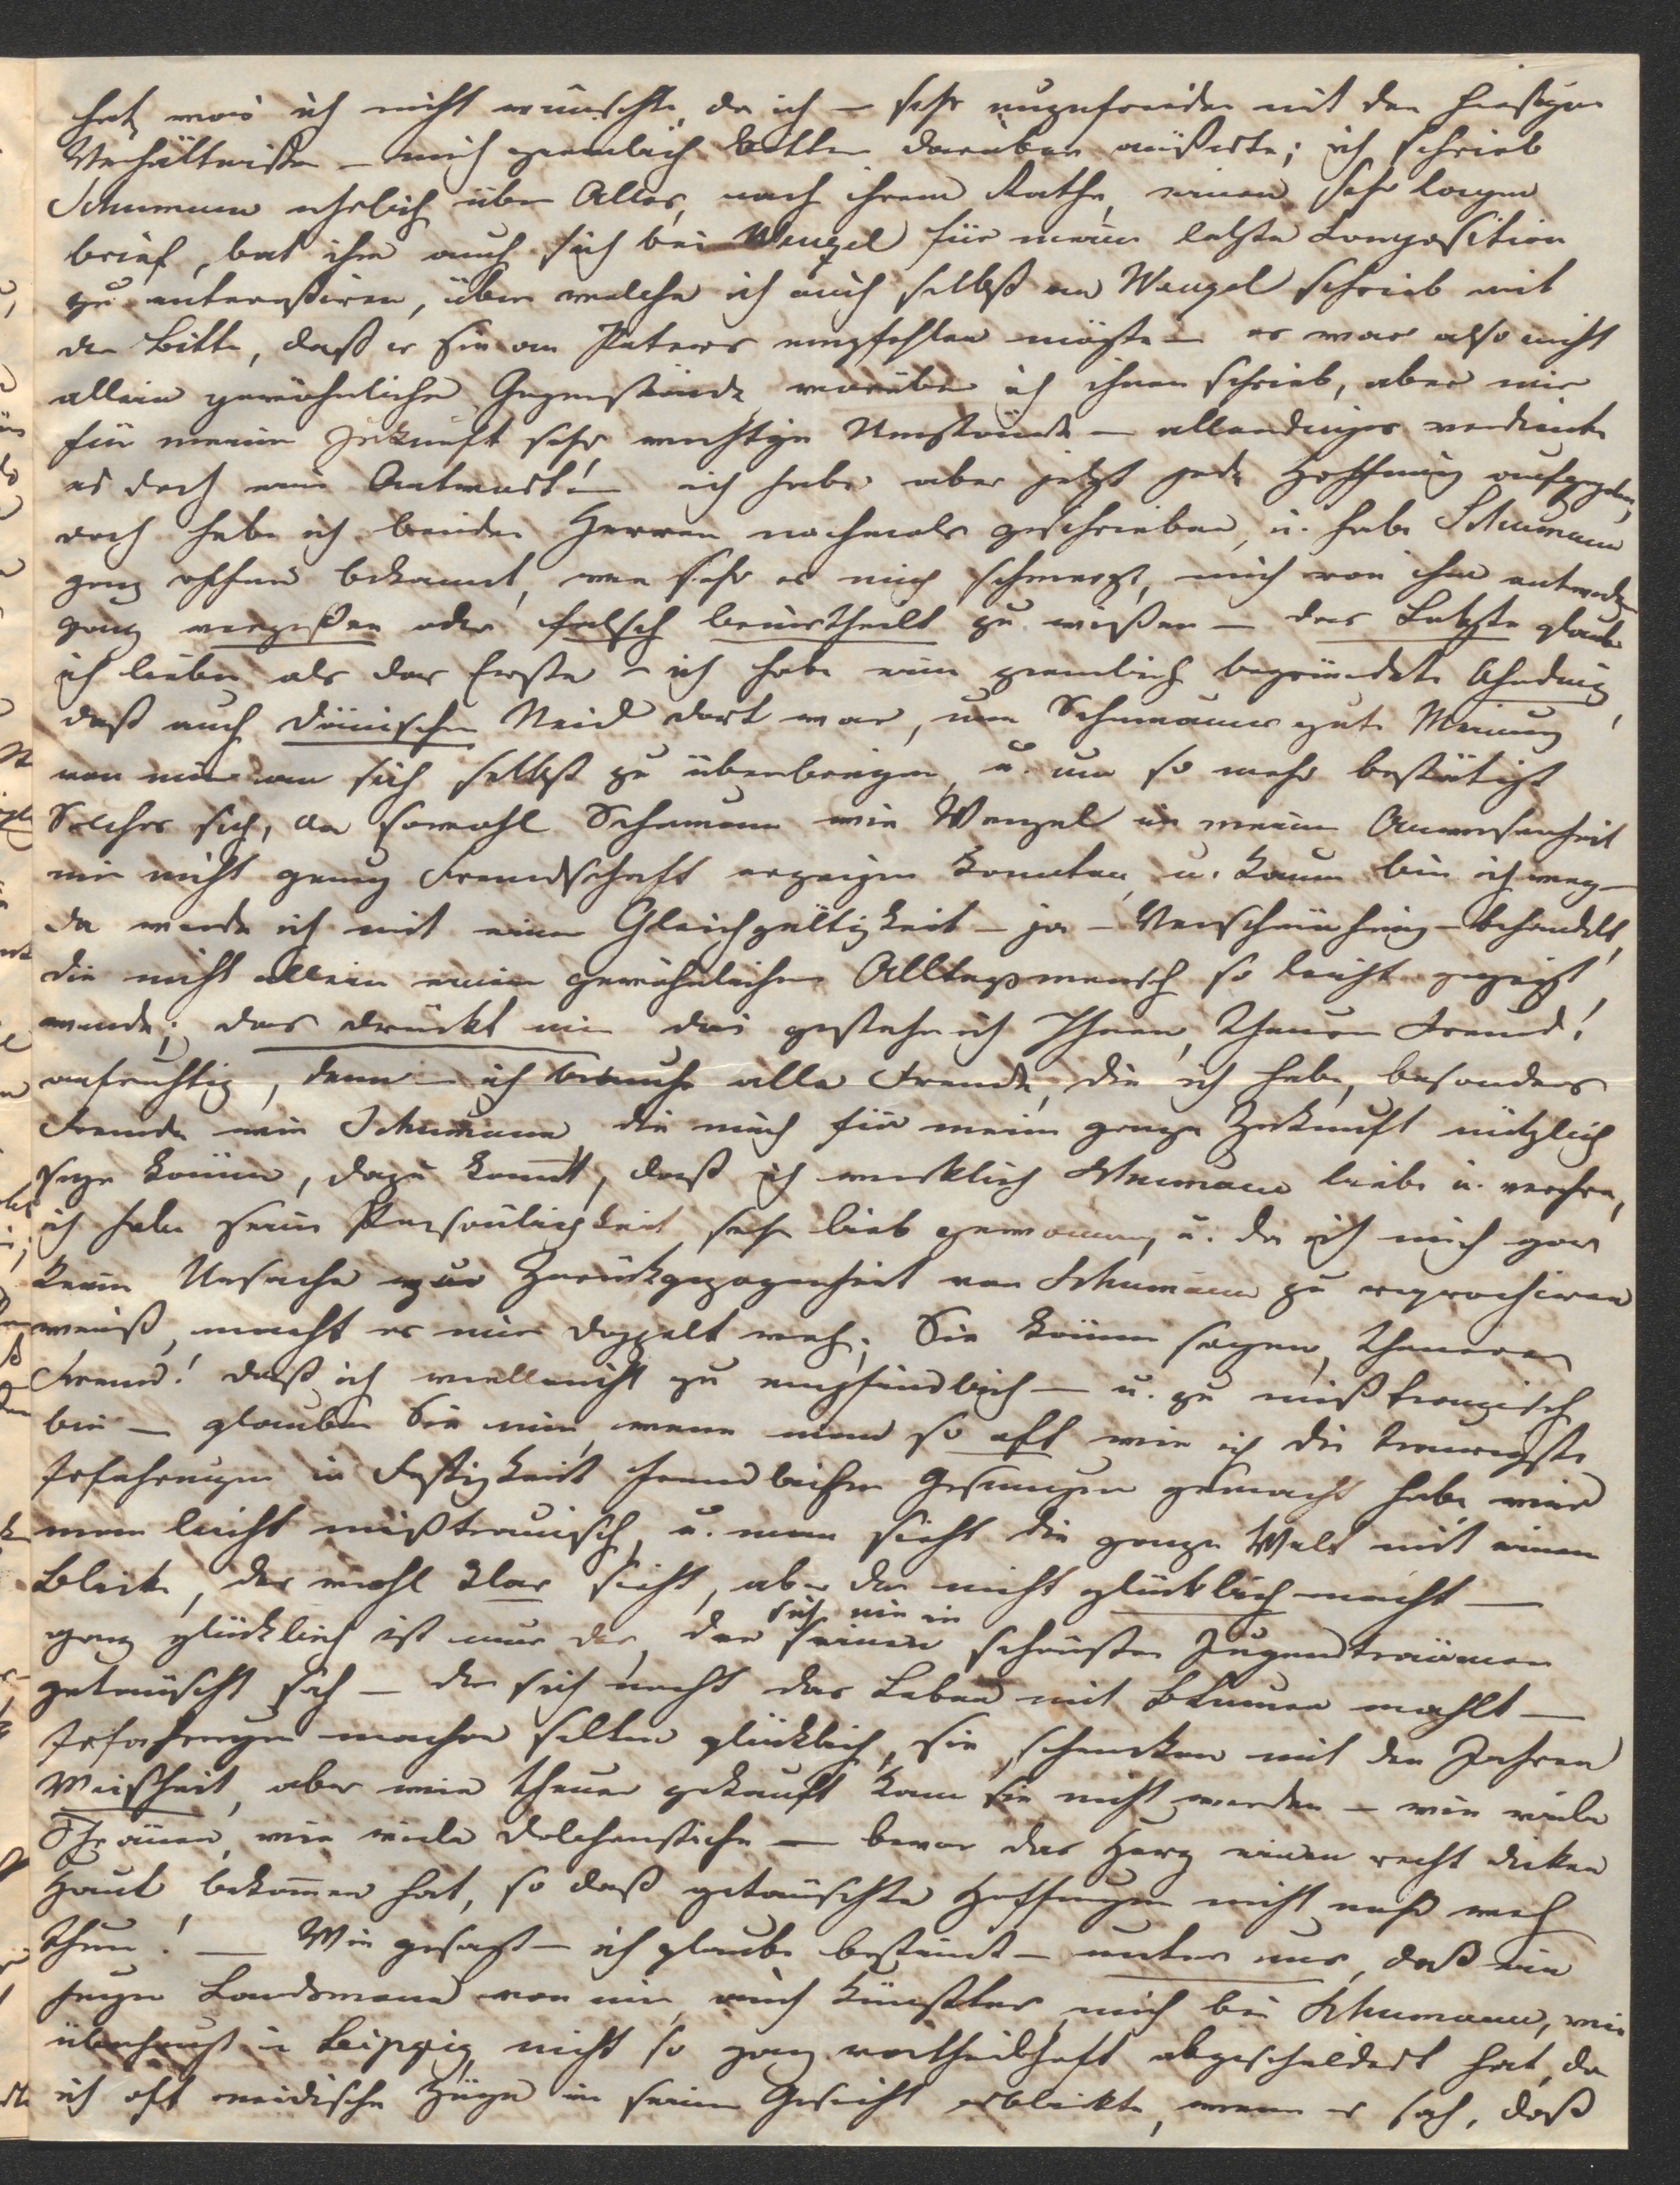 hat, was ich nicht wünschte, da ich – sehr unzufrieden mit den hiesigen
Verhältnissen – mich ziemlich bitter darüber äußerte; ich schrieb
Schumann ehrlich über Alles, nach ihrem Rathe, einen sehr langen
brief, bat ihn auch sich bei Wenzel für meine letzte Composition
zu interessiren, über welche ich auch selbst an Wenzel schrieb mit
der Bitte, daß er sie an Peters empfehlen möchte – es war also nicht
allein gewöhnliche Gegenstände worüber ich ihnen schrieb, aber mir
für meine Zukunft sehr wichtige Umstände – allerdings verdiente
es doch eine Antwort! – ich habe aber jetzt jede Hoffnung aufgegeben,
doch habe ich beiden Herren nochmals geschrieben, u. habe Schumann
ganz offen bekannt, wie sehr es mich schmerzt, mich von ihm entweder
ganz vergeßen oder falsch beurtheilt zu wißen – das Letzte glaube
ich lieber als das Erste – ich habe eine ziemlich begründete Ahndung,
daß auch dänischer Neid dort war, um Schumanns gute Meinung
von mir an sich selbst zu überbringen, u. um so mehr bestätigt
Solches sich, da sowohl Schumann wie Wenzel in meiner Anwesenheit
mir nicht genug Freundschaft erzeigen konnten, u. kaum bin ich weg –
da werde ich mit einer Gleichgültigkeit – ja – Verschmähung – behandelt,
die nicht allein einem gewöhnlichen Alltagsmensch so leicht gezeigt
wurde; das drückt mir das gestehe ich Ihnen, theurer Freund!
aufrichtig, denn – ich brauche alle Freunde, die ich habe, besonders
Freunde wie Schumann, die mich für meine ganze Zukunft nützlich
seyn können, dazu kommt, daß ich wirklich Schumann liebe u. verehre,
ich habe seine Persönlichkeit sehr lieb gewonnen, u. da ich mich gar
keine Ursache zur Zurückgezogenheit von Schumann zu reprochiren
weiß, macht es mir doppelt weh; Sie können sagen, theurer
Freund! daß ich vielleicht zu empfindlich – u. zu mißtrauisch
bin – glauben Sie mir, wenn man so oft wie ich die traurigste
Erfahrungen in Festigkeit freundlicher Gesinnungen gemacht habe wird
man leicht mißtrauisch, u. man sieht die ganze Welt mit einem
Blick, der wohl klar sieht, aber der nicht glücklich macht –
ganz glücklich ist nur der, der sich nie in seinen schönsten Jugendträumen
getäuscht sah – der sich nicht das Leben mit Blumen mahlt –
Erfahrungen machen selten glücklich, sie schenken mit den Jahren
Weisheit, aber wie theuer gekauft kann sie nicht werden – wie viele
Thränen, wie viele Dolchenstiche – bevor das Herz einen recht dicken
Haut bekommen hat, so daß getäuschte Hoffnungen nicht mehr weh
thun! – Wie gesagt – ich glaube bestimt – unter uns, daß ein
junger Landsmann von mir, auch Künstler, mich bei Schumann, wie
überhaupt in Leipzig, nicht so ganz vortheilhaft abgeschildert hat, da
ich oft neidische Züge in seinem Gesicht erblickte, wenn er sah, daß